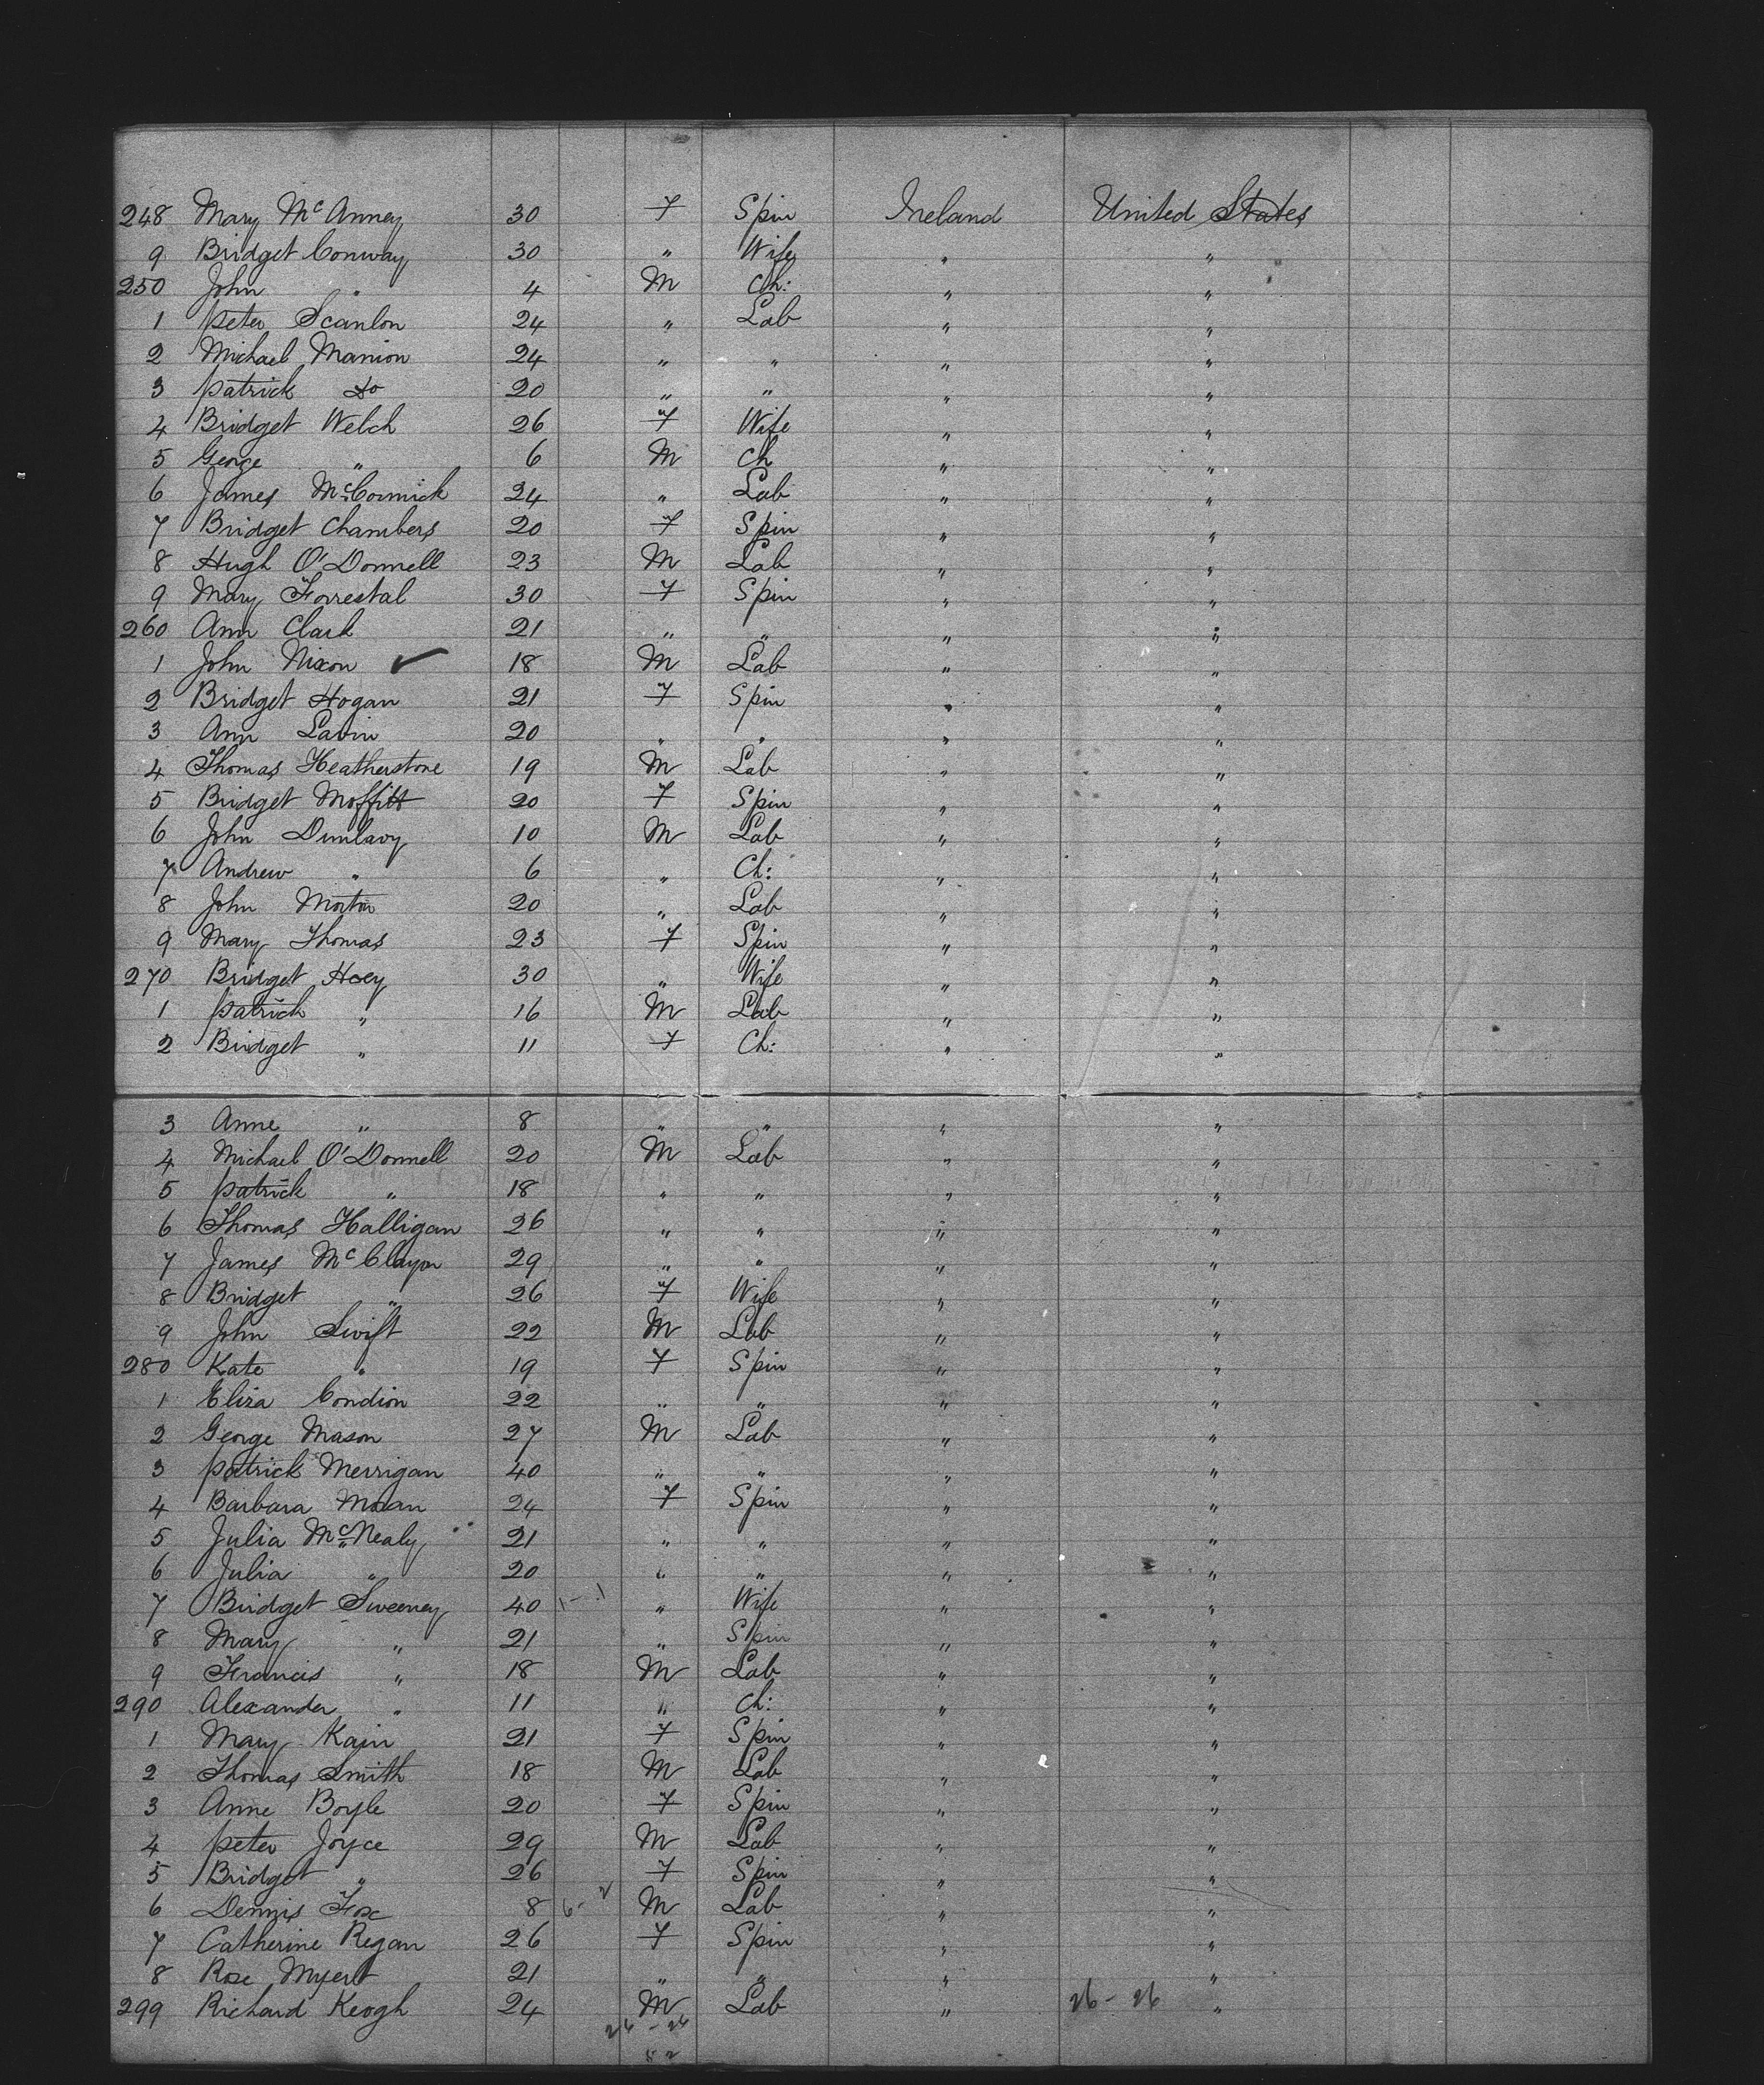 248 Mary McAnney 30 F Spin Ireland United States
9 Bridget Conway 30 " Wife " "
250 John " 4 M Ch: " "
1 Peter Scanlon 24 " Lab " "
2 Michael Manion 24 " " " "
3 Patrick do 20 " " " "
4 Bridget Welch 26 F Wife " "
5 George " 6 M Ch " "
6 James McCormick 24 " Lab " "
7 Bridget Chambers 20 F Spin " "
8 Hugh O'Donnell 23 M Lab " "
9 Mary Forrestal 30 F Spin " "
260 Ann Clark 21 " " " "
1 John Nixon ✓ 18 M Lab " "
2 Bridget Hogan 21 F Spin " "
3 Ann Lavin 20 " " " "
4 Thomas Heatherstone 19 M Lab " "
5 Bridget Moffitt 20 F Spin " "
6 John Dunlavy 10 M Lab " "
7 Andrew " 6 " Ch: " "
8 John Morton 20 " Lab " "
9 Mary Thomas 23 F Spin " "
270 Bridget Hoey 30 " Wife " "
1 Patrick " 16 M Lab " "
2 Bridget " 11 F Ch: " "
3 Anne " 8 " " " "
4 Michael O'Donnell 20 M Lab " "
5 Patrick " 18 " " " "
6 Thomas Halligan 26 " " " "
7 James McClayon 29 " " " "
8 Bridget " 26 F Wife " "
9 John Swift 22 M Lab " "
280 Kate " 19 F Spin " "
1 Eliza Condion 22 " " " "
2 George Mason 27 M Lab " "
3 Patrick Merrigan 40 " " " "
4 Barbara Moran 24 F Spin " "
5 Julia McNealy 21 " " " "
6 Julia " 20 " " " "
7 Bridget Sweeney 40 1-1 " Wife " "
8 Mary " 21 " Spin " "
9 Francis " 18 M Lab " "
290 Alexander " 11 " Ch: " "
1 Mary Kain 21 F Spin " "
2 Thomas Smith 18 M Lab " "
3 Anne Boyle 20 F Spin " "
4 Peter Joyce 29 M Lab " "
5 Bridget " 26 F Spin " "
6 Dennis Fox 8 6- M Lab " "
7 Catherine Regan 26 F Spin " "
8 Rose Myert 21 " " " "
299 Richard Keogh 24 M Lab " 26-26 "
26-26
52